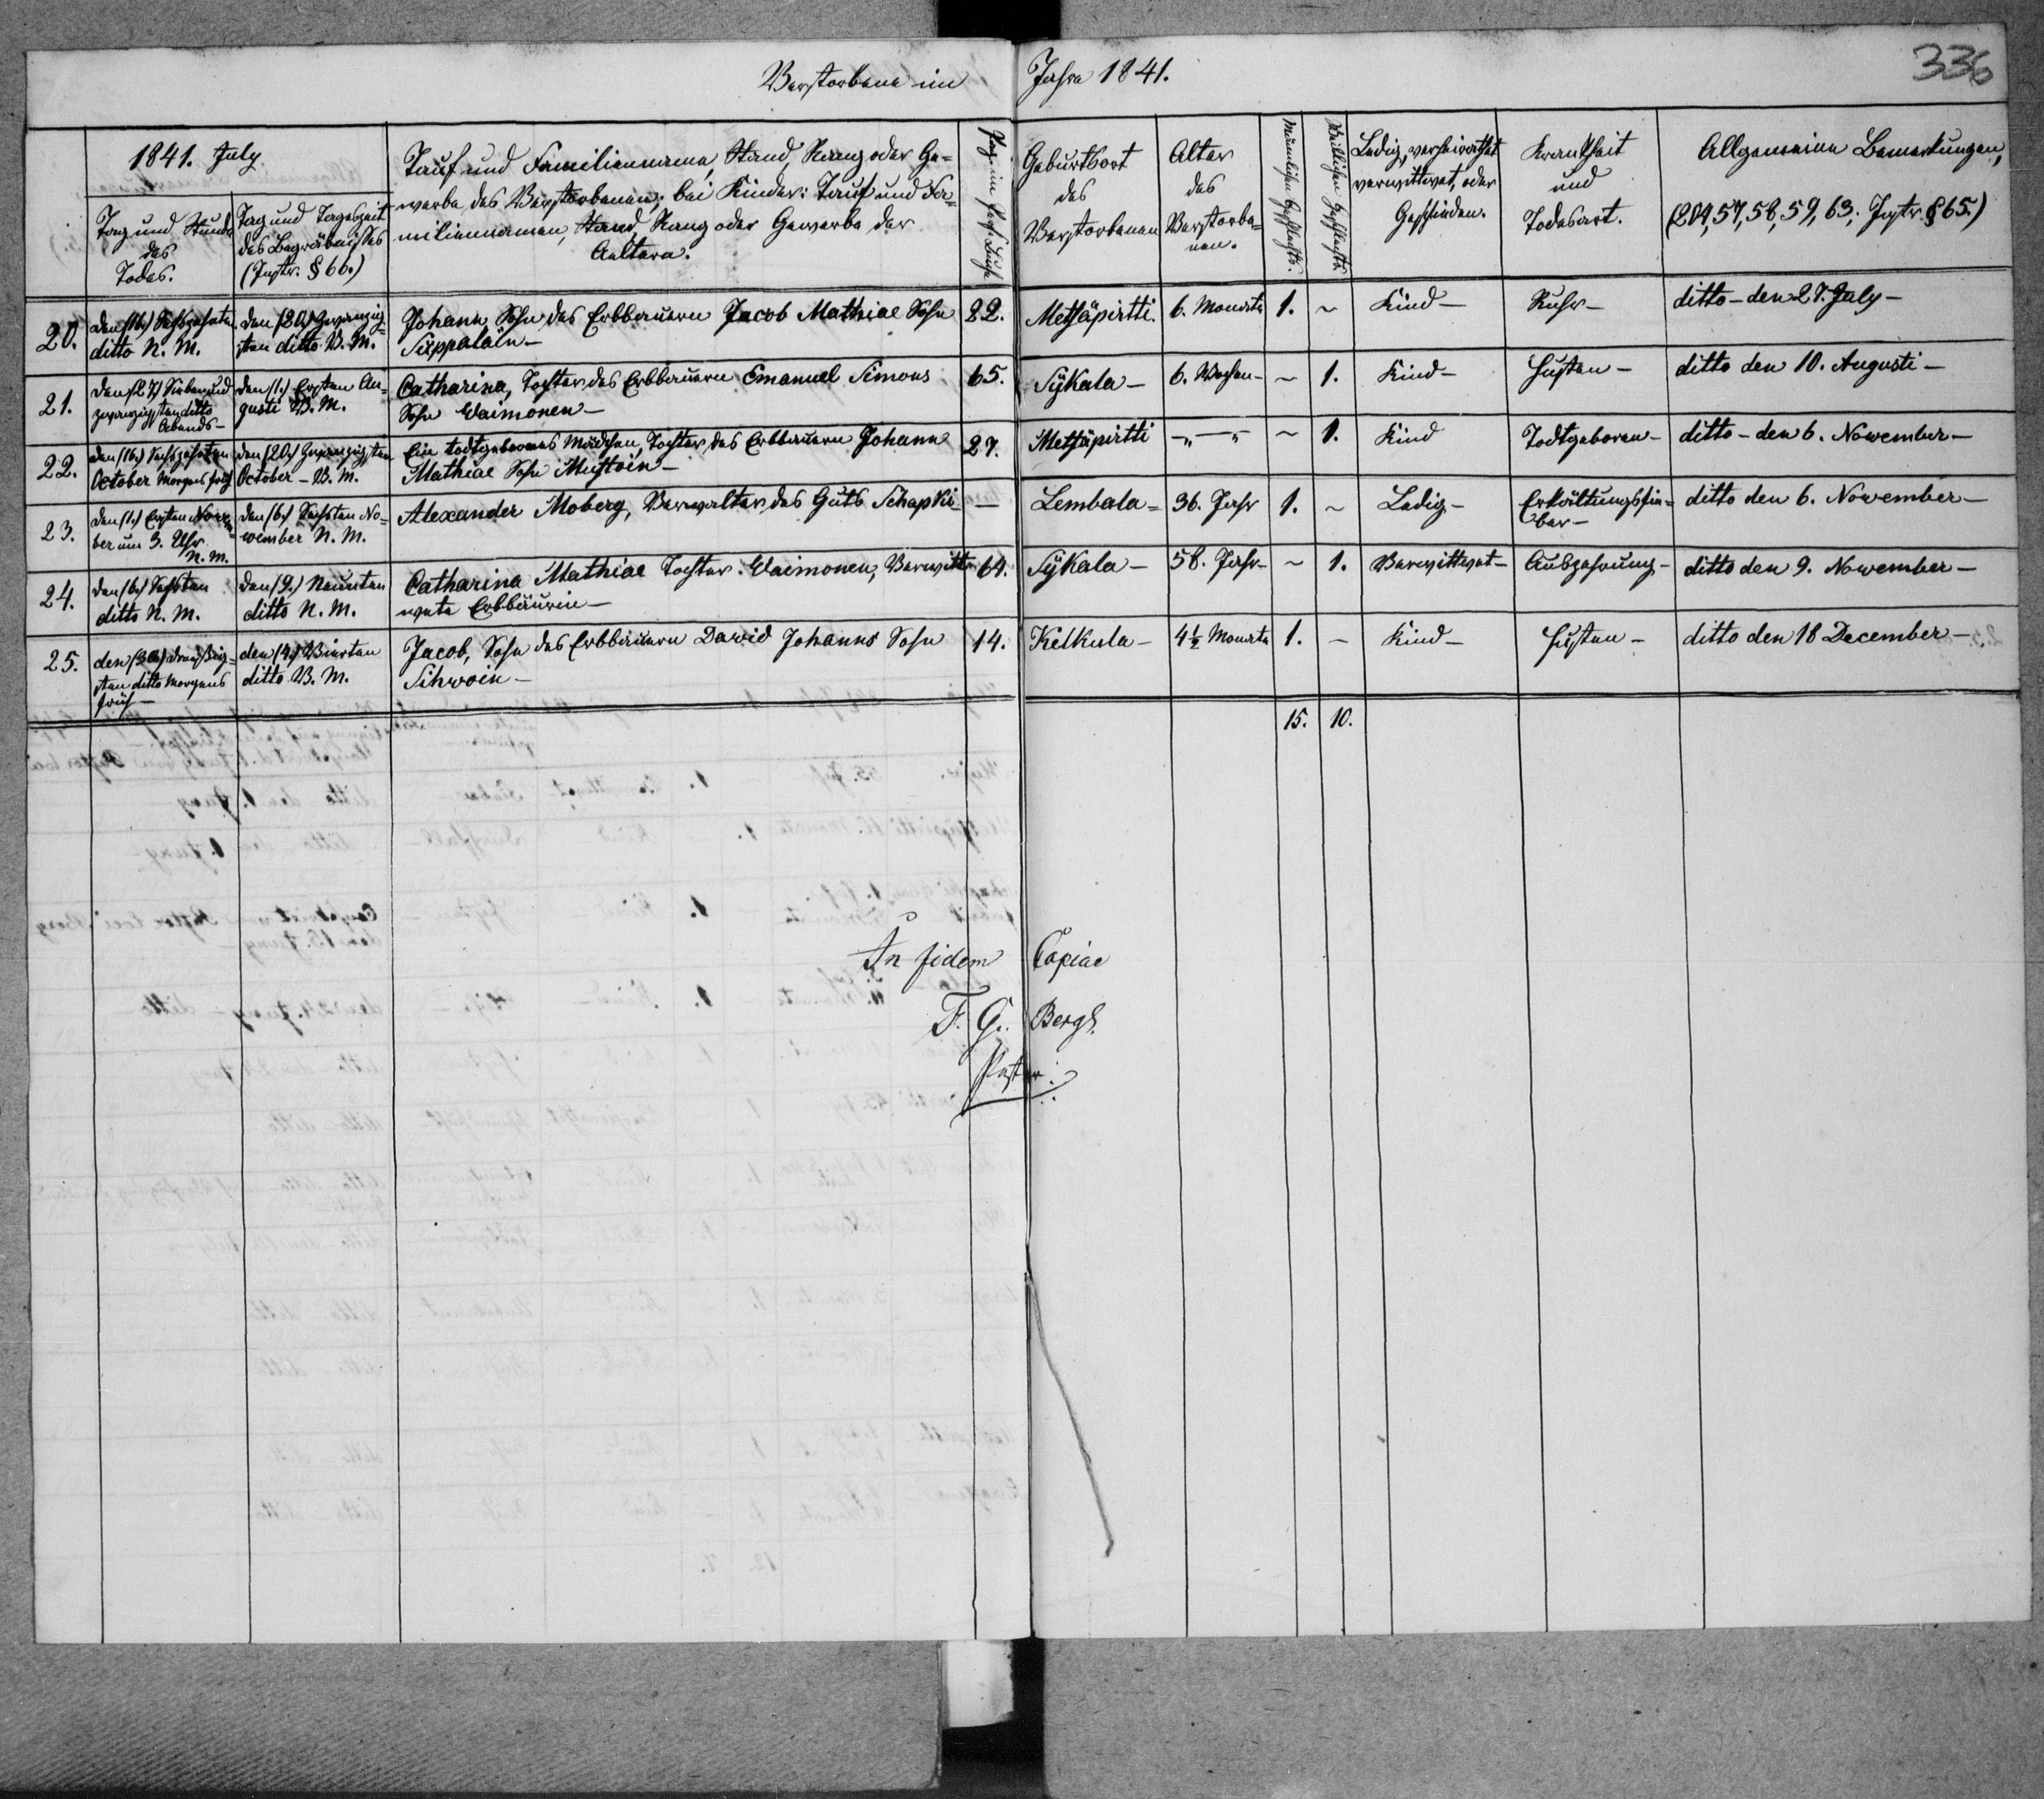 336
Verstorbene im Jahre 1841.
1841. July.
Tag und Stunde
des
Todes.
Tag und Tageszeit
des Begräbnisses
(Instr. § 66.)
Tauf und Familienname, Stand, Rang oder Ge=
werbe des Verstorbenen; bei Kinder: Tauf und Fa=
miliennamen, Stand, Rang oder Gewerbe der
Aeltern.
Geburtsort
des
Verstorbenen
Alter
des
Verstorbe=
nen.
Männlichen Geschlechts.
Weiblichen Geschlechts.
Ledig, verheirathet
verwittwet, oder
Geschieden.
Krankheit
und
Todesart.
Allgemeine Bemerkungen,
(204, 57, 58, 59, 63; Instr. § 65.)
20.
den (16.) Sechszehnten
ditto N. M.
den (20.) Zwanzig=
sten ditto V. M.
Johann Sohn des Erbbauern Jacob Mathiae Sohn
Süppaläin —
22.
Metsäpirtti.
6. Monate
1.
~
Kind —
Ruhr —
ditto — den 27. July —
21.
den (27.) Sieben und
zwanzigsten ditto
Abends —
den (1.) Ersten Au=
gusti V. M.
Catharina, Tochter des Erbbauern Emanuel Simons
Sohn Waimonen —
65.
Sÿkala —
6. Wochen —
~
1.
Kind —
Husten —
ditto den 10. Augusti —
22.
den (16.) Sechszehnten
October Morgens früh
den (20.) Zwanzigsten
October — V. M.
Ein todtgebornes Mädchen, Tochter des Erbbauern Johann
Mathiae Sohn Mustoin —
27.
Metsäpirtti
—„—„
~
1.
Kind
Todtgeboren —
ditto — den 6. November —
23.
den (1.) Ersten Novem=
ber um 3. Uhr
N. M.
den (6.) Sechsten No=
wember N. M.
Alexander Moberg, Verwalter des Guts Schapki —
—
Lembala =
36. Jahr
1.
~
Ledig —
Erkältungsfie=
ber —
ditto den 6. November —
24.
den (6.) Sechsten
ditto N. M.
den (9.) Neunten
ditto N. M.
Catharina Mathiae Tochter Waimonen, Verwitt=
wete Erbbäurin —
64.
Sÿkala —
58. Jahr —
~
1.
Verwittwet —
Auszehrung —
ditto den 9. November —
25.
den (30.) dreißig=
sten ditto Morgens
früh —
den (4.) Vierten
ditto V. M.
Jacob, Sohn des Erbbauern David Johanns Sohn
Sihwoin —
14.
Kelkula —
4½ Monate
1.
—
Kind —
Husten —
ditto den 18 December —
15. 10.
In fidem Copiae
F. G. Bergh
Pastor.